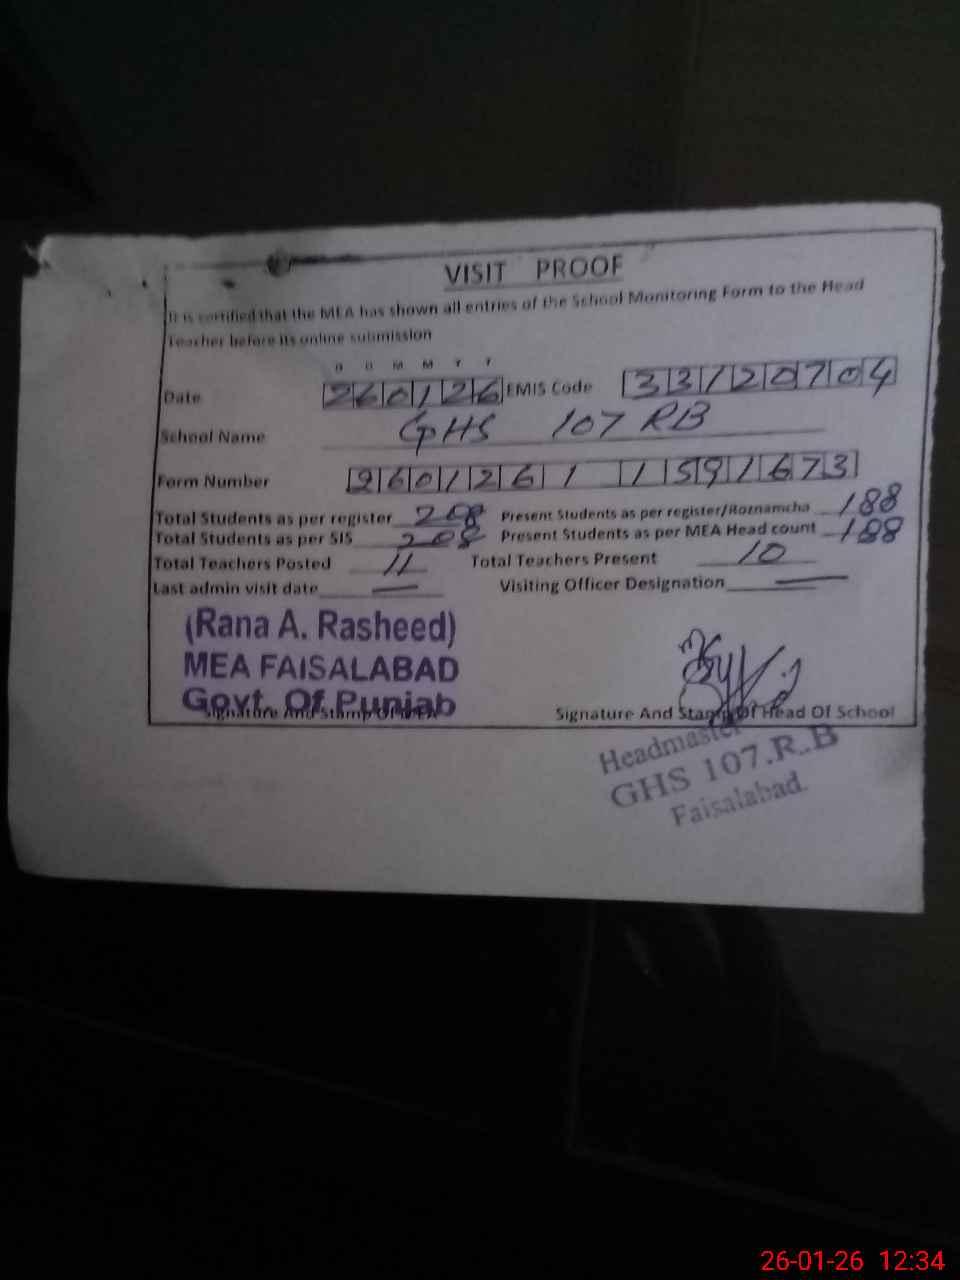 VISIT PROOF
It is certified that the MEA has shown all entries of the School Monitoring Form to the Head
Teacher before its online submission
D D M M Y Y
Date 260126 EMIS Code 33120704
School Name GHS 107 RB
Form Number 2601261 1591673
Total Students as per register 208 Present Students as per register/Roznamcha 188
Total Students as per SIS 208 Present Students as per MEA Head count 188
Total Teachers Posted 11 Total Teachers Present 10
Last admin visit date — Visiting Officer Designation —
(Rana A. Rasheed)
MEA FAISALABAD
Govt. Of Punjab
Signature And Stamp Of MEA Signature And Stamp Of Head Of School
Headmaster
GHS 107.R.B
Faisalabad.
26-01-26 12:34